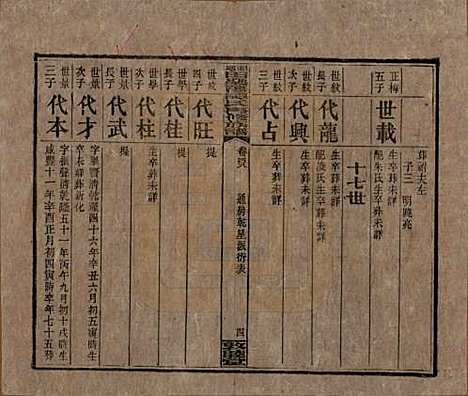 正梅
五子
世載
生卒葬未詳
配朱氏生卒葬未詳
子三
十七世
世紋
長子
代龍
生卒葬未詳
配凌氏生卒葬未詳
世紋
次子
代興
生卒葬未詳
世紋
三子
代占
生卒葬未詳
卷
四
敦睦堂
世紋
四子
代旺
提
世學
長子
代桂
提
世學
次子
代柱
生卒葬未詳
世景
長子
代武
提
世景
次子
代才
字華賢清乾隆四十六年辛丑六月初五寅時生
卒葬未詳
世景
三子
代本
字振聲清乾隆五十一年丙午九月初十戌時生
咸豐十一年辛酉正月初四寅時卒年七十五葬